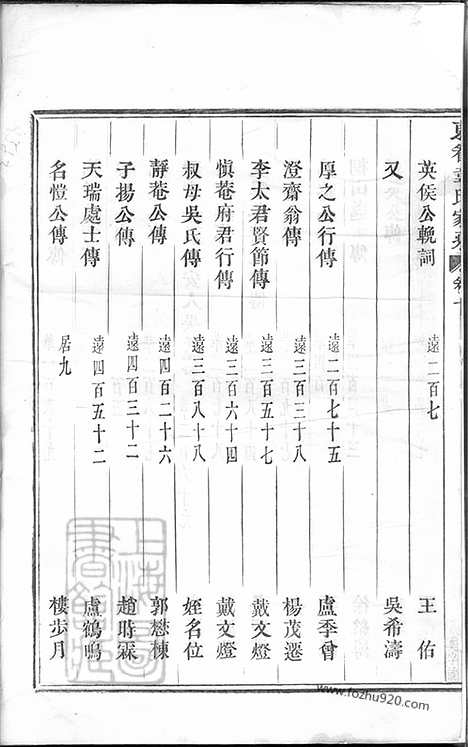 英侯公輓詞 遠二百七 王佑
又 吳希濤
厚之公行傳 遠二百七十五 盧季曾
澄齋翁傳 遠三百三十八 楊茂遷
李太君賢節傳 遠三百五十七 戴文燈
慎菴府君行傳 遠三百六十四 戴文燈
叔母吳氏傳 遠三百八十八 姪名位
靜菴公傳 遠四百二十六 郭懋棟
子揚公傳 遠四百三十二 趙時霖
天瑞處士傳 遠四百五十二 盧鶴鳴
名愷公傳 居九 樓步月
www.fozhu920.com